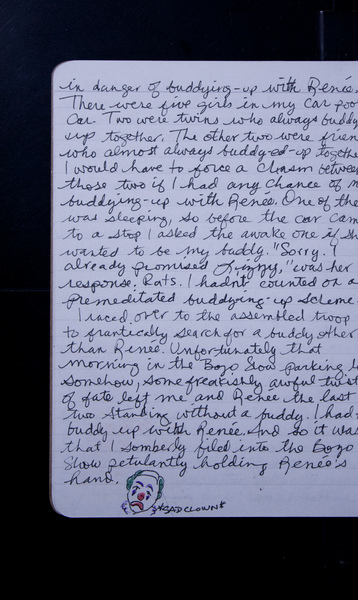 in danger of buddying-up with Renée.
There were five girls in my car poo
Car. Two were twins who always buddy
up together. The other two were frien
who almost always buddy-ed-up togethe
I would have to force a chasm between
those two if I had any chance of n
buddying-up with Renée. One of the
was sleeping, so before the car cam
to a stop I asked the awake one if sh
wanted to be my buddy. "Sorry. I
already promised Jimmy," was her
response. Rats. I hadn't counted on a
premeditated buddying-up scheme.
I raced over to the assembled troop
to frantically search for a buddy other
than Renée. Unfortunately that
morning in the Bozo Show parking l
somehow, some freakishly awful twist
of fate left me and Renée the last
two standing without a buddy. I had t
buddy up with Renée. And so it was
that I somberly filed into the Bozo
Show petulantly holding Renée's
hand.
*SAD CLOWN*